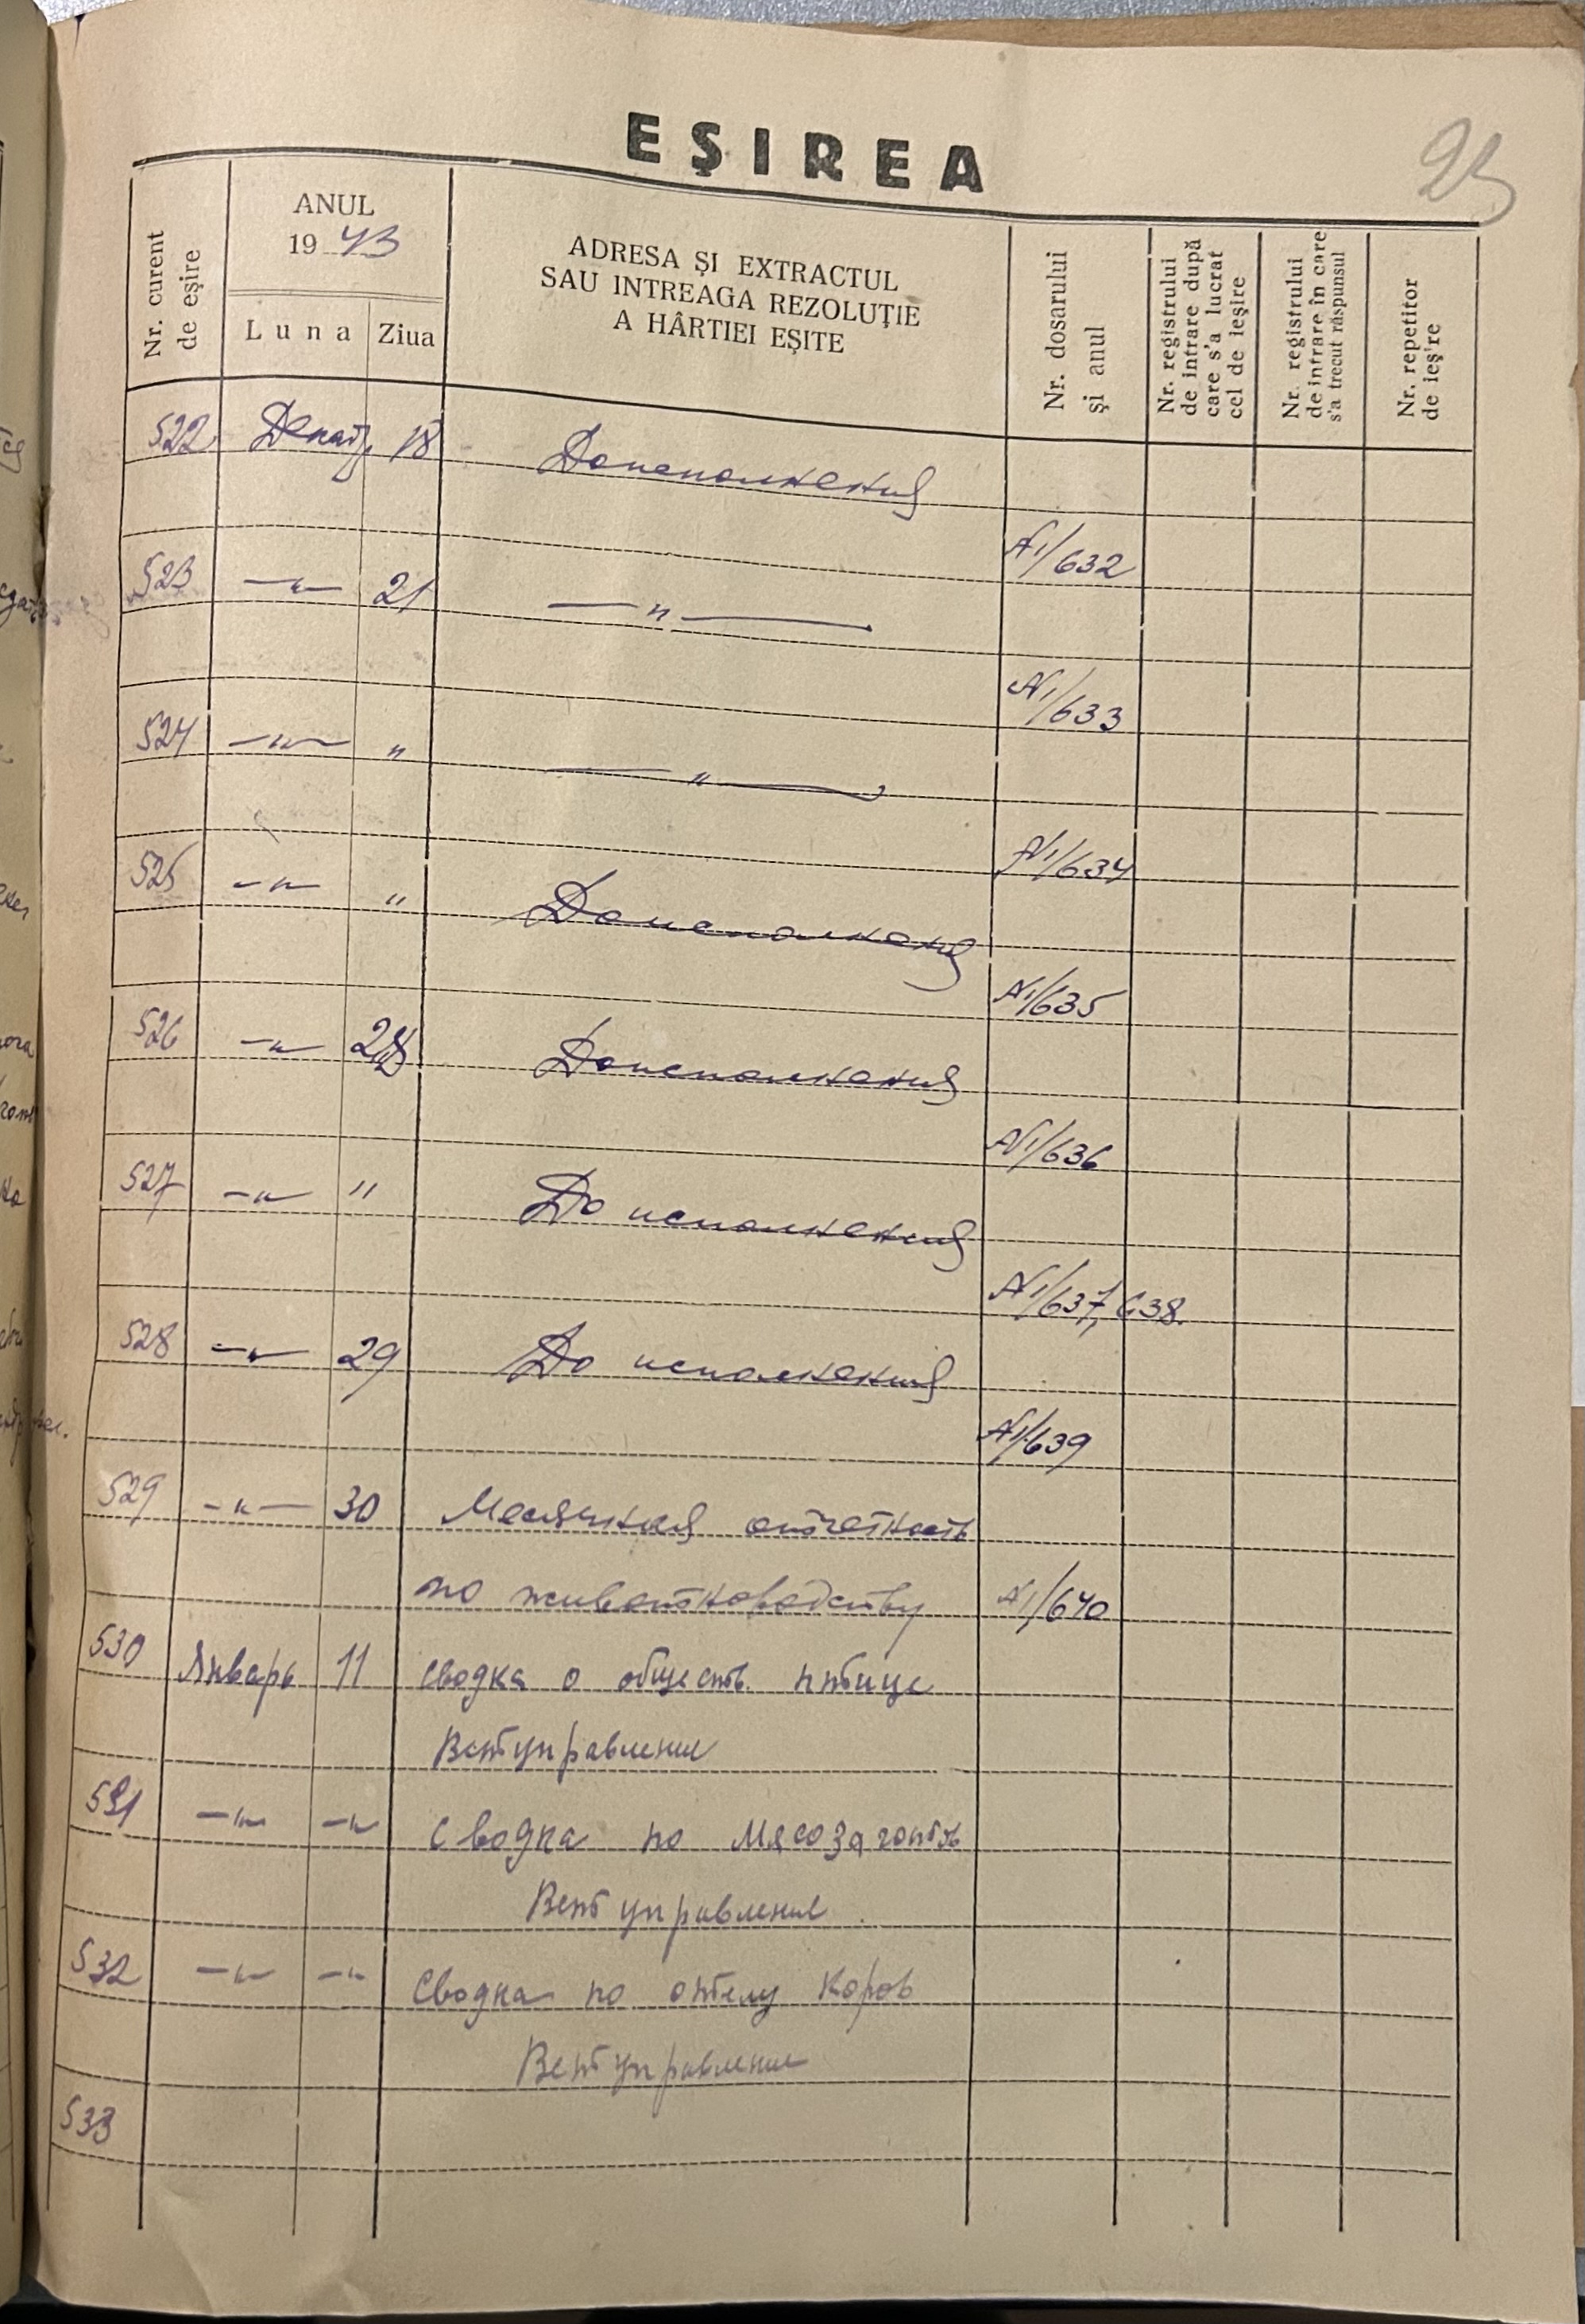 EŞIREA
25
Nr. curent de eşire
ANUL
19 43
Luna
Ziua
ADRESA ŞI EXTRACTUL
SAU INTREAGA REZOLUŢIE
A HÂRTIEI EŞITE
Nr. dosarului
şi anul
Nr. registrului
de intrare după
care s'a lucrat
cel de ieşire
Nr. registrului
de intrare în care
s'a trecut răspunsul
Nr. repetitor
de ieş're
522 Декабр 18 Доисполнения
№1/632
523 —"— 21 —"—
№1/633
524 —"— " —"—
№1/634
525 —"— " Доисполнения
№1/635
526 —"— 28 Доисполнения
№1/636
527 —"— " До исполнения
№1/637, 638.
528 —"— 29 До исполнения
№1/639
529 —"— 30 Месячная отчетность
по животноводству №1/640
530 Январь 11 Сводка о обществ. птице
Ветуправление
531 —"— —"— Сводка по Мясозаготов
Ветуправление
532 —"— —"— Сводка по отелу коров
Ветуправление
533